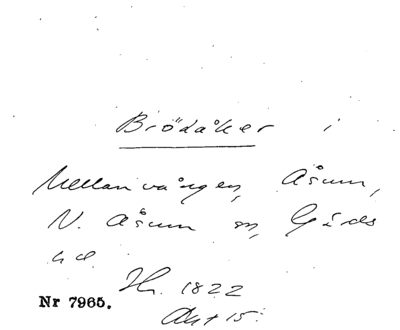 Brödåker i
Mellanvången, Åsum,
N. Åsum sn, Gärds
hd.
Hr. 1822
Nr 7965.
Akt 15.